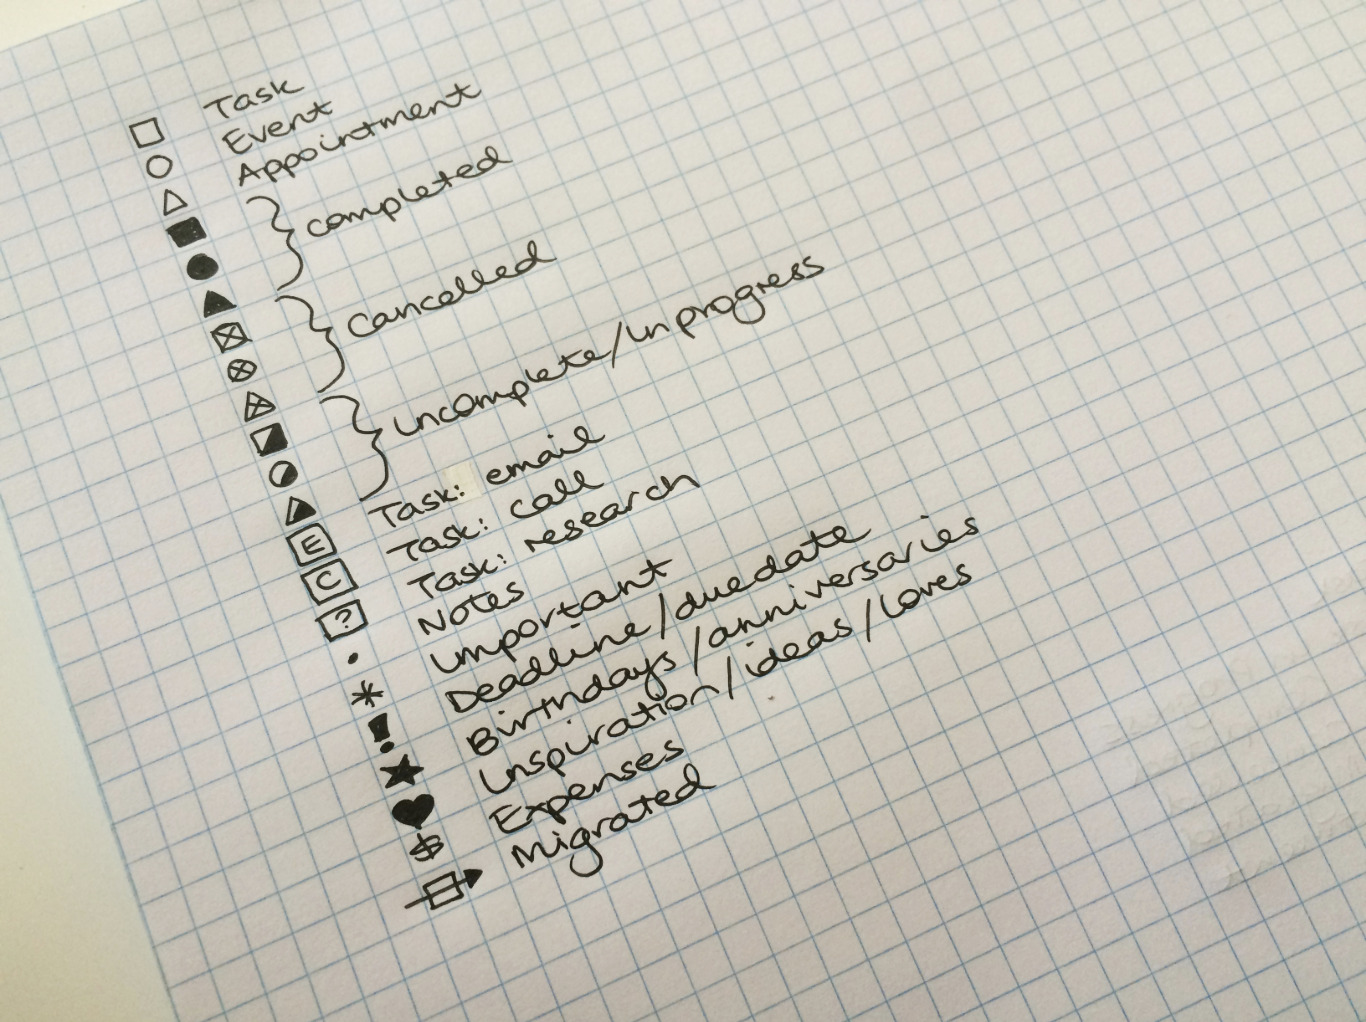 Task
Event
Appointment
completed
cancelled
uncomplete/in progress
E Task: email
C Task: call
? Task: research
Notes
* Important
! Deadline/due date
Birthdays/anniversaries
Inspiration/ideas/loves
$ Expenses
Migrated